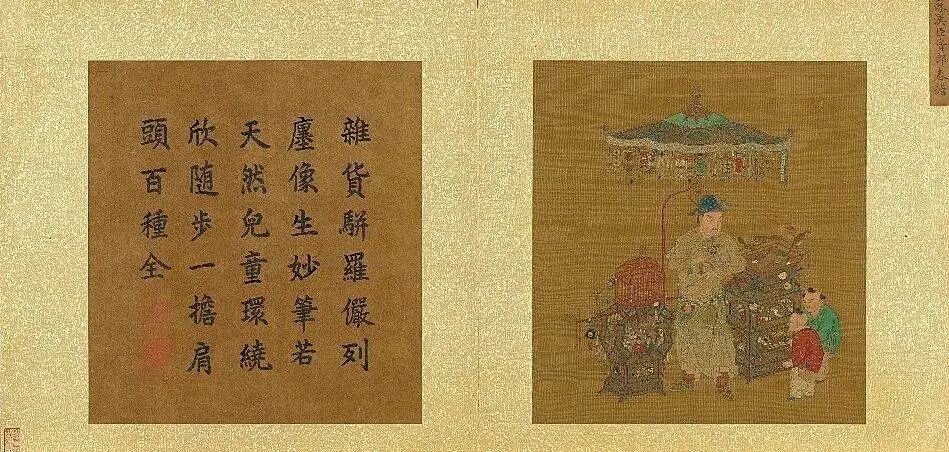 雜貨駢羅儼列
廛像生妙筆若
天然兒童環繞
欣随步一擔肩
頭百種全